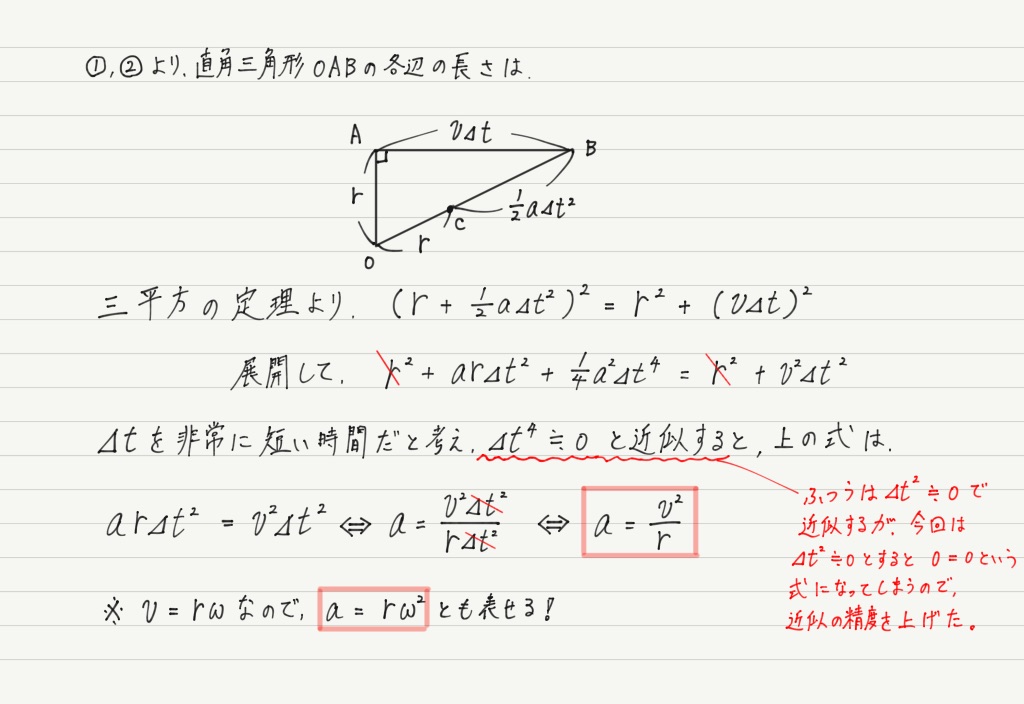 ①,②より、直角三角形OABの各辺の長さは、
A
vΔt
B
r
½aΔt²
C
r
O
三平方の定理より、(r + ½aΔt²)² = r² + (vΔt)²
展開して、r² + arΔt² + ¼a²Δt⁴ = r² + v²Δt²
Δtを非常に短い時間だと考え、Δt⁴≒0と近似すると、上の式は、
arΔt² = v²Δt² ⇔ a = v²Δt²/rΔt² ⇔ a = v²/r
ふつうはΔt²≒0で
近似するが、今回は
Δt²≒0とすると 0=0という
式になってしまうので、
近似の精度を上げた。
※ v = rωなので、a = rω² とも表せる!